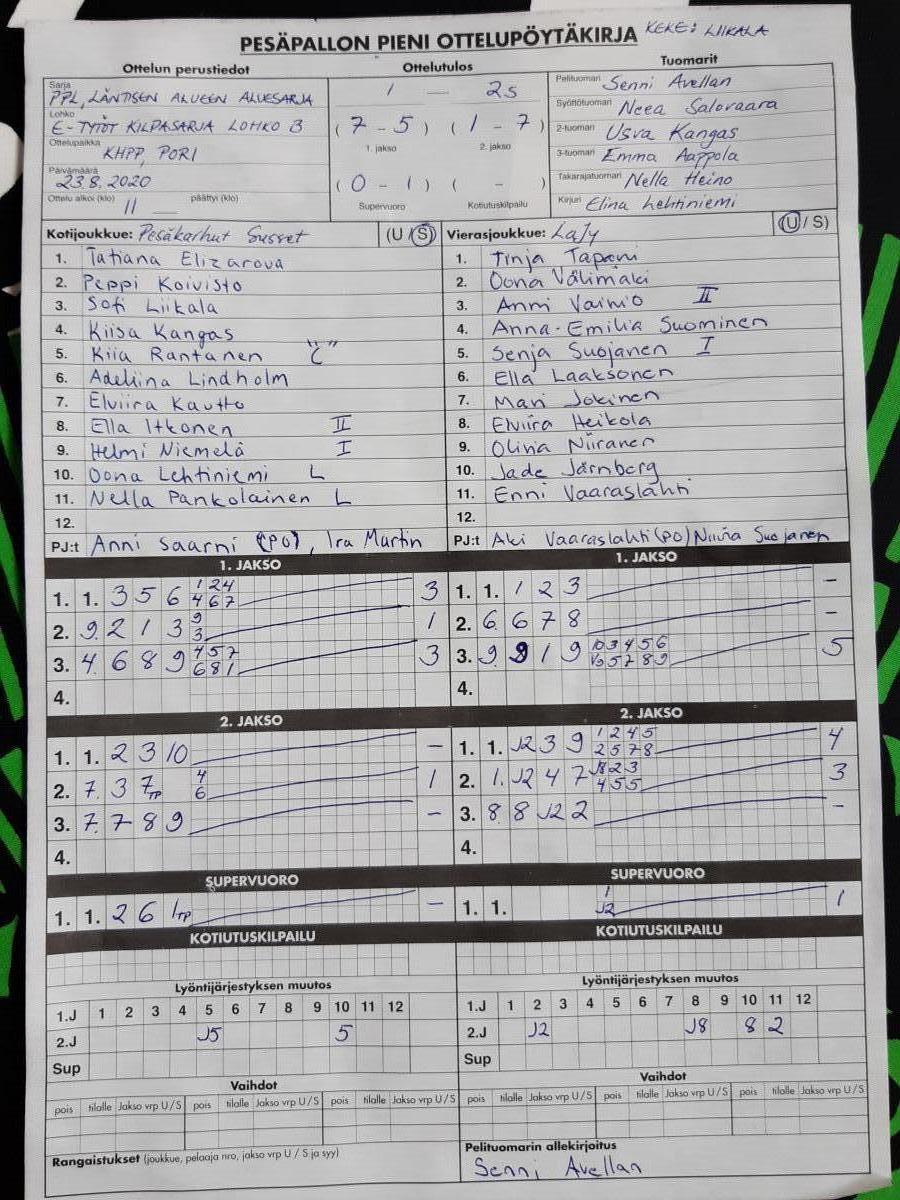 PESÄPALLON PIENI OTTELUPÖYTÄKIRJA KEKE: LIIKALA
Ottelun perustiedot
Sarja
PPL, LÄNTISEN ALUEEN ALUESARJA
Lohko
E-TYTÖT KILPASARJA LOHKO B
Ottelupaikka
KHPP, PORI
Päivämäärä
23.8.2020
Ottelu alkoi (klo) 11 päättyi (klo)
Ottelutulos
1 — 2s
(7 - 5) (1 - 7)
1. jakso 2. jakso
(0 - 1) ( - )
Supervuoro Kotiutuskilpailu
Tuomarit
Pelituomari Senni Avellan
Syöttötuomari Neea Salovaara
2-tuomari Usva Kangas
3-tuomari Emma Aappola
Takarajatuomari Nella Heino
Kirjuri Elina Lehtiniemi
Kotijoukkue: Pesäkarhut Susset (U / S)
1. Tatiana Elizarova
2. Peppi Koivisto
3. Sofi Liikala
4. Kiisa Kangas
5. Kiia Rantanen "C"
6. Adeliina Lindholm
7. Elviira Kautto
8. Ella Itkonen II
9. Helmi Niemelä I
10. Oona Lehtiniemi L
11. Nella Pankolainen L
12.
PJ:t Anni Saarni (PO), Ira Martin
Vierasjoukkue: LaJy (U / S)
1. Tinja Tapani
2. Oona Välimäki
3. Anni Vainio II
4. Anna-Emilia Suominen
5. Senja Suojanen I
6. Ella Laaksonen
7. Mari Jokinen
8. Elviira Heikola
9. Olivia Niiranen
10. Jade Järnberg
11. Enni Vaaraslahti
12.
PJ:t Aki Vaaraslahti (PO) Niina Suojanen
1. JAKSO
1. 1. 3 5 6 1 2 4 3
4 6 7
2. 9. 2 1 3 9 1
3
3. 4. 6 8 9 4 5 7 3
6 8 1
4.
1. JAKSO
1. 1. 1 2 3 -
2. 6. 6 7 8 -
3. 9. 9 1 9 10 3 4 5 6 5
10 5 7 8 9
4.
2. JAKSO
1. 1. 2 3 10 -
2. 7. 3 7TP 4 1
6
3. 7. 7 8 9 -
4.
2. JAKSO
1. 1. J2 3 9 1 2 4 5 4
2 5 7 8
2. 1. J2 4 7 J8 2 3 3
4 5 5
3. 8. 8 J2 2 -
4.
SUPERVUORO
1. 1. 2 6 1TP -
SUPERVUORO
1. 1. 1 1
J2
KOTIUTUSKILPAILU
KOTIUTUSKILPAILU
Lyöntijärjestyksen muutos
1.J 1 2 3 4 5 6 7 8 9 10 11 12
2.J J5 5
Sup
Lyöntijärjestyksen muutos
1.J 1 2 3 4 5 6 7 8 9 10 11 12
2.J J2 J8 8 2
Sup
Vaihdot
pois tilalle Jakso vrp U / S pois tilalle Jakso vrp U / S pois tilalle Jakso vrp U / S
Vaihdot
pois tilalle Jakso vrp U / S pois tilalle Jakso vrp U / S pois tilalle Jakso vrp U / S
Rangaistukset (joukkue, pelaaja nro, jakso vrp U / S ja syy)
Pelituomarin allekirjoitus
Senni Avellan